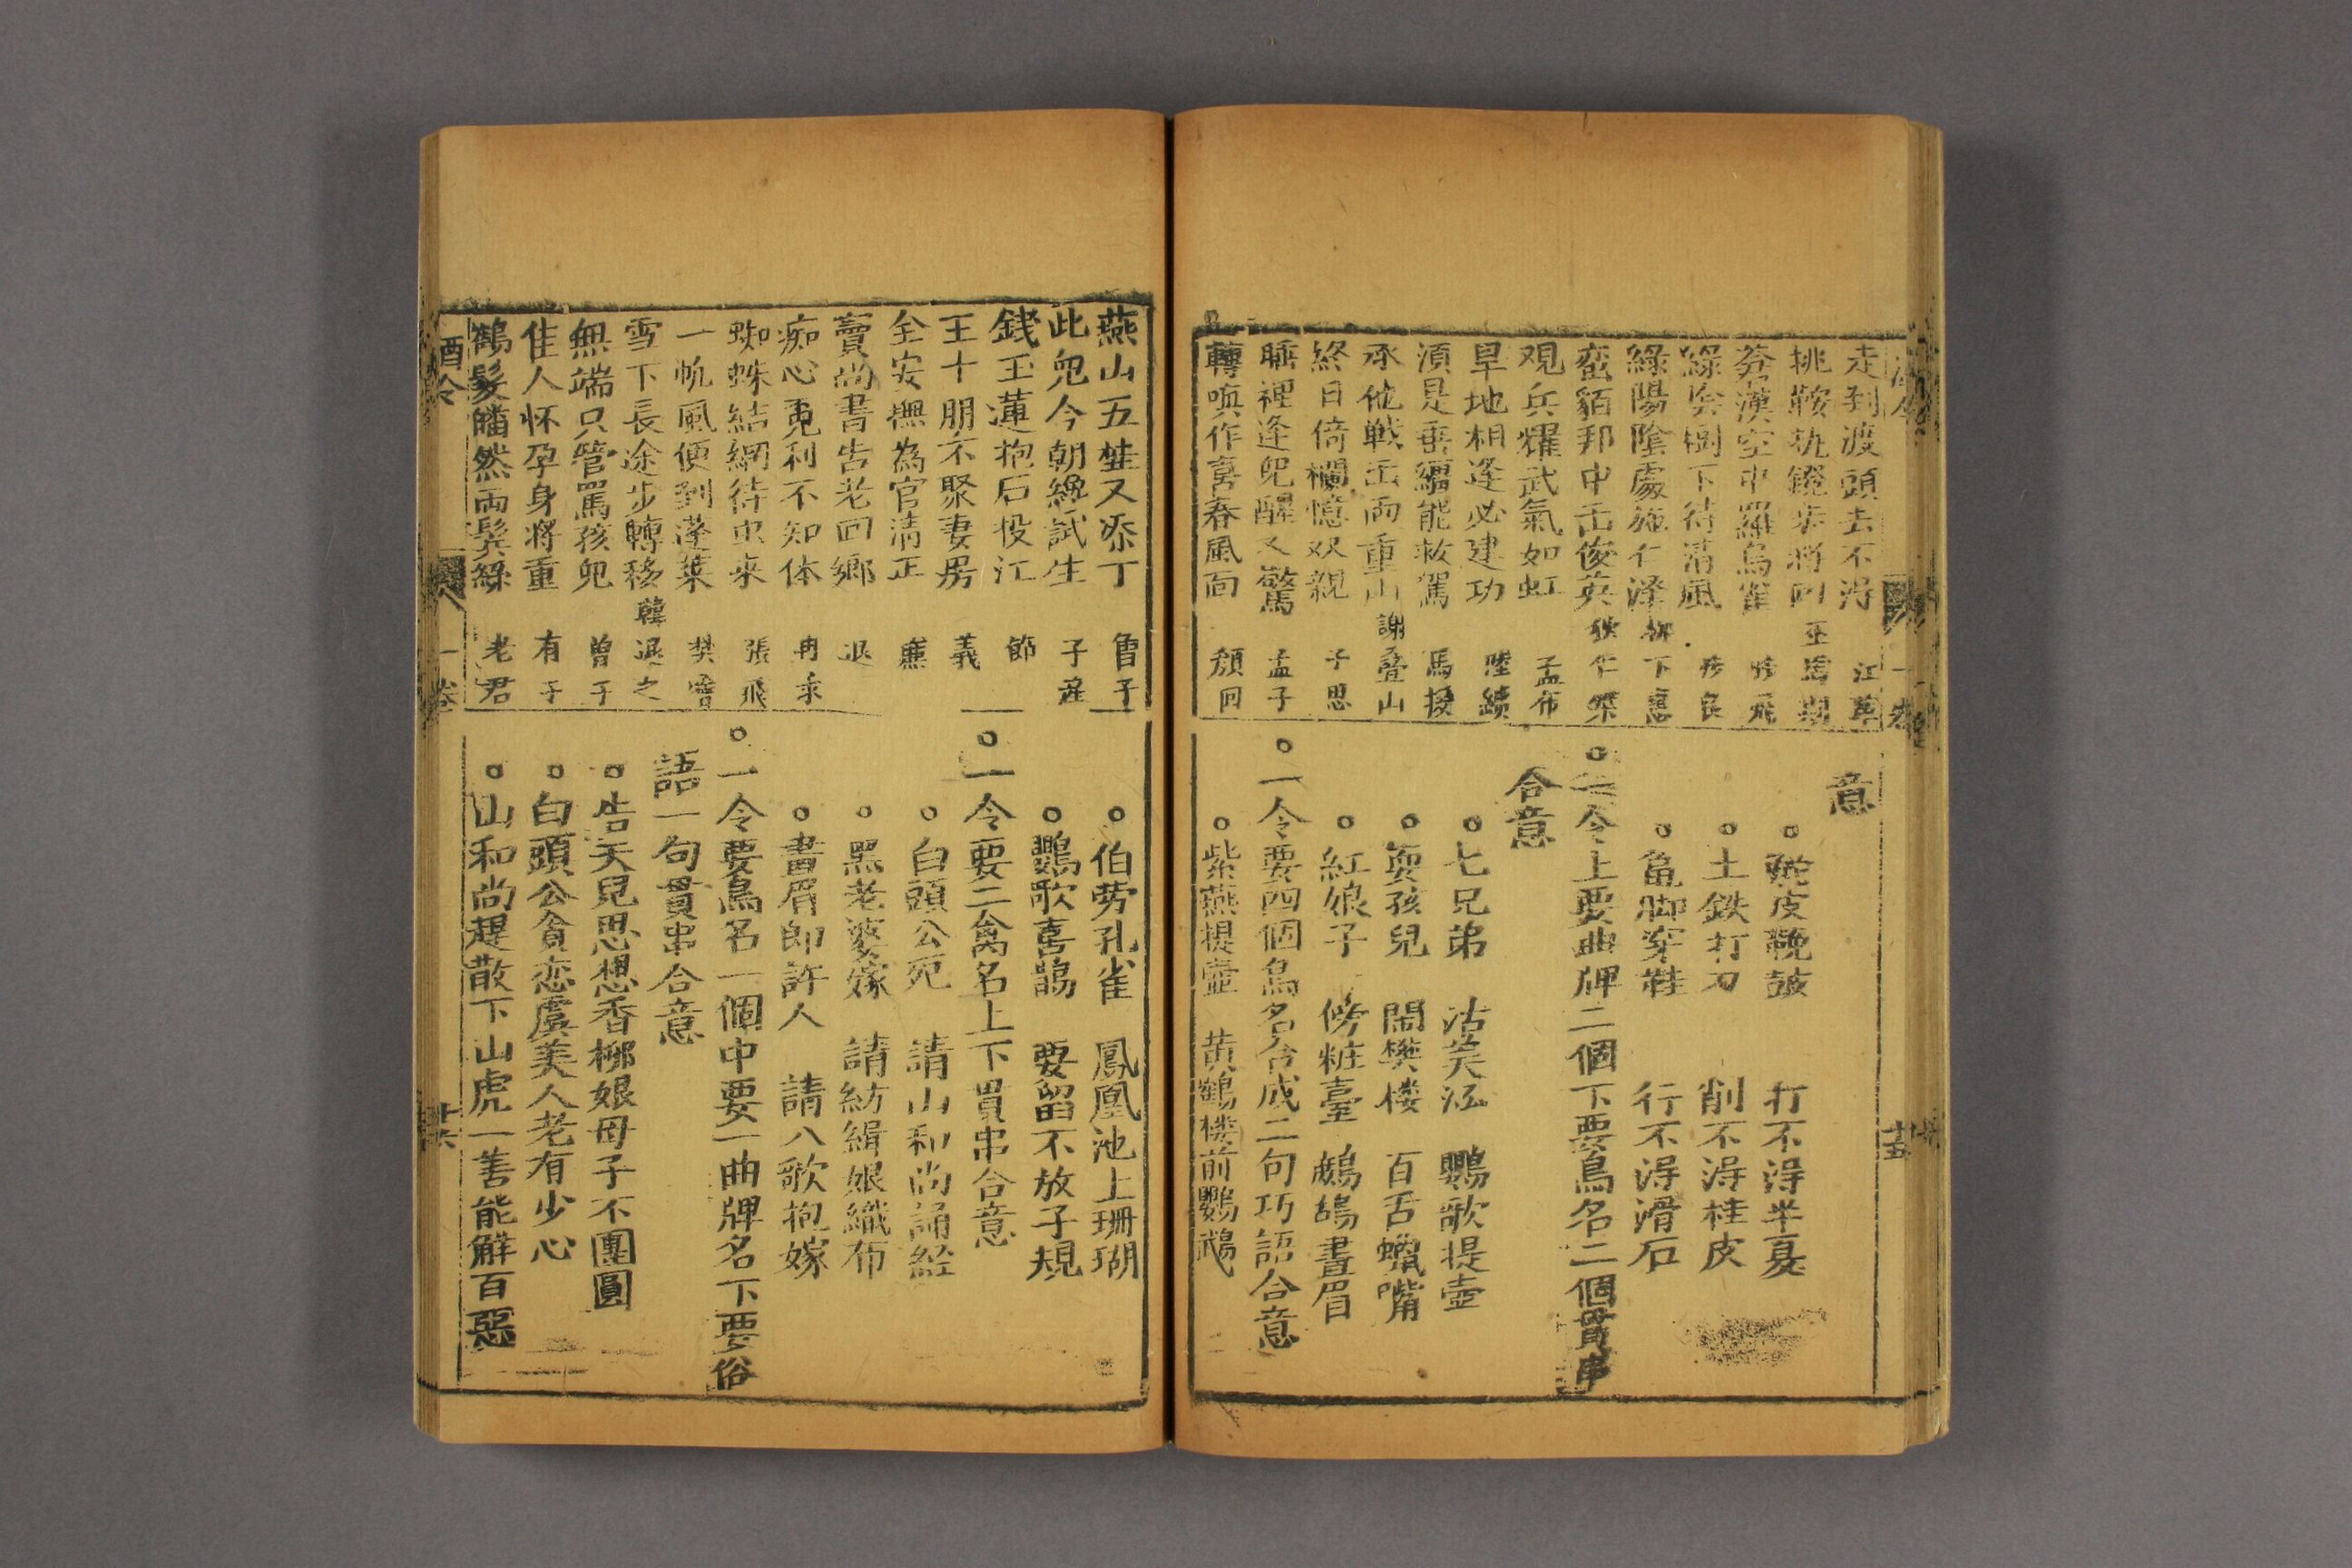 走到渡頭去不淂 江革
挑鞍執鐙步將回 巫馬期
莽漢空中羅烏雀
綠陰樹下待清風
綠陽隂處施仁澤 柳下惠
蛮貊邦中缶俊英 狄仁傑
观兵耀武氣如虹
旱地相逢必建功 陸續
湏是垂繮能救駕 馬援
承他戦缶両重山 謝疊山
終日倚欄憶双親 子思
睡裡逢児醒又驚 孟子
轉嗔作喜春風面 顔回
意
○鞔皮鞔皷 打不淂半夏
○土鉄打刀 削不淂桂皮
○亀脚穿鞋 行不淂滑石
○一令上要曲牌二個下要鳥名二個貫串
合意
○七兄弟 沽美酒 鸚歌提壺
○耍孩兒 鬧樊楼 百舌蠟嘴
○紅娘子 傍粧臺 鷓鴣畫眉
○一令要四個鳥名合成二句巧語合意
○紫燕提壷 黄鶴楼前鸚鵡
燕山五桂又添丁 曾子
此児今朝纔試生 子産
錢玉蓮抱石投江 節
王十朋不聚妻房 義
全安撫為官清正 廉
竇尚書告老回鄉 退
痴心覔利不知体 冉求
蜘蛛結網待虫來 張飛
一帆風便到蓬萊 樊噲
雪下長途步轉移 韓退之
無端只管罵孩児 曽子
佳人怀孕身將重 有子
鶴髮皤然両鬓絲 老君
酒令 一卷
○伯劳孔雀 鳳凰池上珊瑚
○鸚歌喜鵲 要留不放子規
○一令要二禽名上下買串合意
○白頭公死 請山和尚誦經
○黑老婆嫁 請紡緝娘織布
○畫眉郎許人 請八歌抱嫁
○一令要鳥名一個中要一曲牌名下要俗
語一句貫串合意
○告天兒思想香柳娘母子不團圓
○白頭公貪恋虞美人老有少心
○山和尚趕散下山虎一善能觧百惡